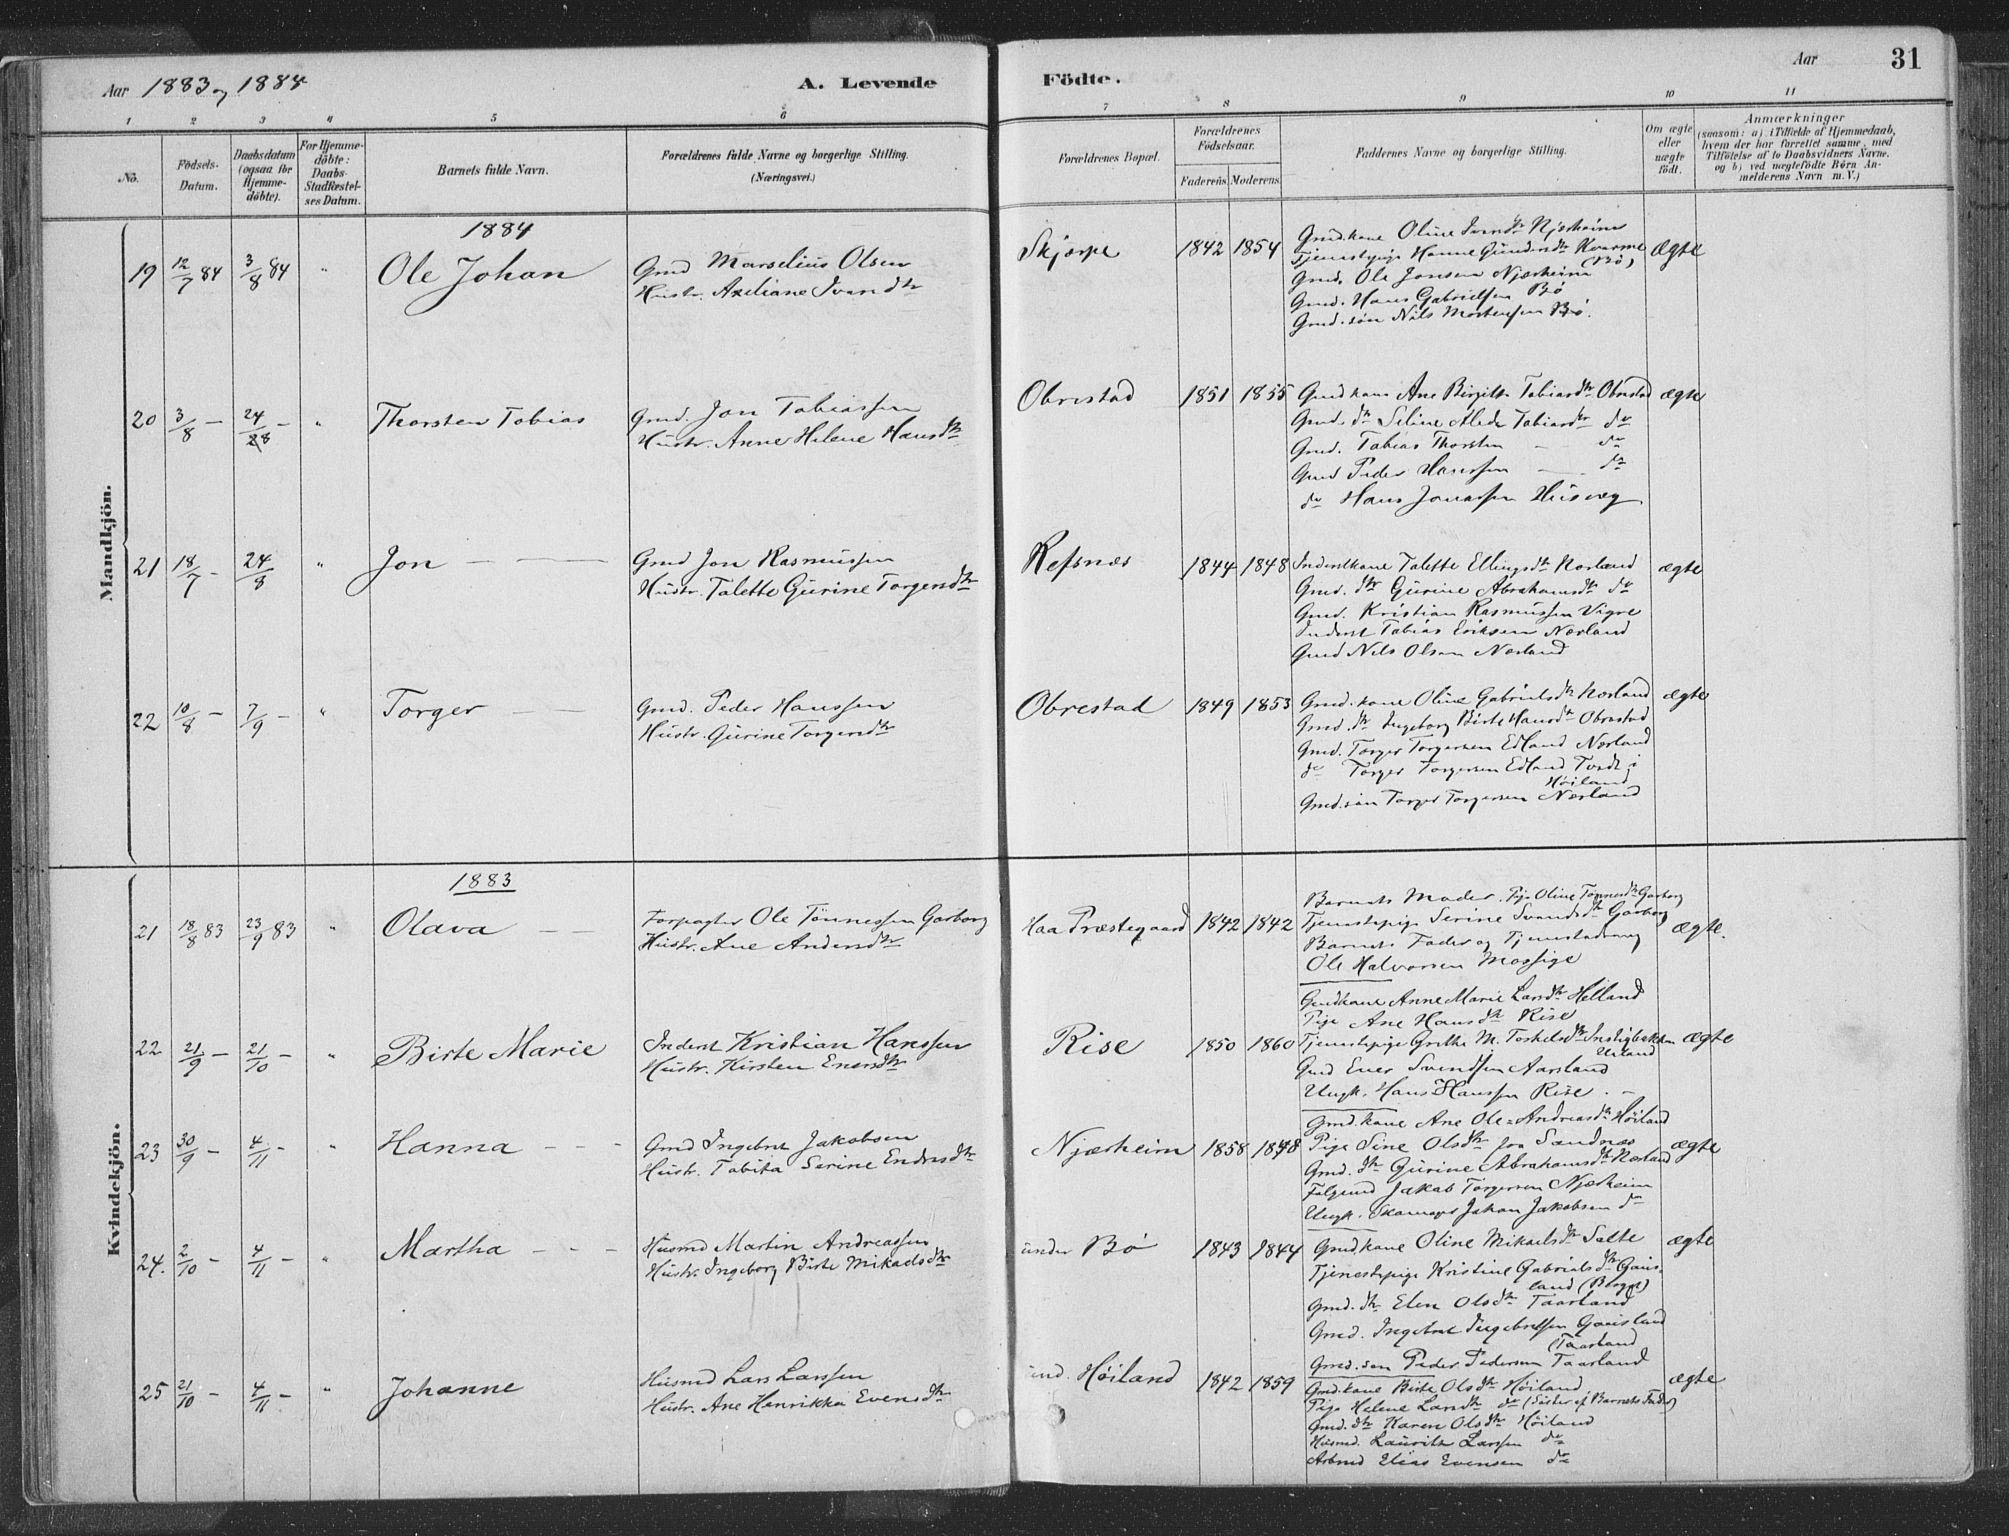 Aar 1883 og 1884
A. Levende Födte.
Aar 31
1 2 3 4 5 6 7 8 9 10 11
No.
Födsels-Datum.
Daabsdatum (ogsaa for Hjemme-döbte).
For Hjemme-döbte: Daabs-Stadfæstel-ses Datum.
Barnets fulde Navn.
Forældrenes fulde Navne og borgerlige Stilling. (Næringsvei.)
Forældrenes Bopæl.
Forældrenes Födselsaar.
Faderens. Moderens.
Faddernes Navne og borgerlige Stilling.
Om ægte eller uægte født.
Anmærkninger
(saasom: a) i Tilfælde af Hjemmedaab,
hvem der har forrettet samme, med
Tilföielse af to Daabsvidners Navne.
og b) ved uægtefödte Börn An-
melderens Navn m. V.)
Mandkjön.
1884
19 12/7 84 3/8 84 " Ole Johan
Gmd Marselius Olsen
Hustr. Axeliane Ivarsdtr
Skjærpe 1842 1854
Gmd.kone Oline Njærheim
Tjenestepige Hanne Gundersdtr Kvarme (Bø)
Gmd. Ole Jonsen Njærheim
Gmd. Hans Gabrielsen Bø
Gmd.søn Nils Mortensen Bø.
Ægte
20 3/8 - 24/8 - " Thorsten Tobias
Gmd. Jon Tobiassen
Hustr. Anne Helene Hansdtr
Obrestad 1851 1855
Gmdkone Ane Birgitte Tobiasdtr Obrestad
Gmd. dtr Seline Alede Tobiasdtr do
Gmd. Tobias Thorsten - do
Gmd Peder Hanssen - do
do Hans Jonassen Husveg
ægte
21 18/7 - 24/8 " Jon
Gmd Jon Rasmussen
Hustr. Talette Gurine Torgersdtr
Refsnæs 1844 1848
Inderstkone Talette Ellingsdtr Nærland
Gmd. dtr Gurine Abrahamsdtr do
Gmd. Kristian Rasmussen Vigre
Inderst Tobias Eriksen Nærland
Gmd Nils Olsen Nærland
ægte
22 10/8 - 7/9 - " Torger
Gmd. Peder Hanssen
Hustr. Gurine Torgersdtr
Obrestad 1849 1853
Gmd.kone Oline Gabrielsdtr Nærland
Gmd. dtr Ingeborg Birte Hansdtr Obrestad
Gmd. Torger Torgersen Edland Nærland
do Torger Torgersen Edland Tvedt i Høiland
Gmd.søn Torger Torgersen Nærland
ægte
Kvindekjön.
1883
21 18/8 83 23/9 83 " Olava
Forpagter Ole Tønnessen Garborg
Hustr. Ane Andersdtr
Haa Præstegaard 1842 1842
Barnets Moder. Pige Oline Tønnesdtr Garborg
Tjenestepige Serine Svendsdtr Garborg
Barnets Fader og Tjenestedreng
Ole Halvorsen Mossige
ægte.
22 21/9 - 21/10 - " Birte Marie
Inderst Kristian Hanssen
Hustr. Kirsten Enersdtr
Rise 1850 1860
Gmdkone Anne Marie Larsdtr Helland
Pige Ane Hansdtr Rise
Tjenestepige Grethe M. Torkelsdtr Instigbakken
Gmd Ener Svendsen Aarsland
Ungk. Hans Hanssen Rise
ægte
23 30/9 - 4/11 - " Hanna
Gmd Ingebret Jakobsen
Hustr. Tobita Serine Endresdtr
Njærheim 1858 1848
Gmd.kone Ane Ole-Andreasdtr Høiland
Pige Sine Olsdtr fra Sandnæs
Gmd. dtr Gurine Abrahamsdtr Nærland
Folgemd Jakob Torgersen Njærheim
Ungk. Johan Jakobsen do
ægte
24. 2/10 - 4/11 - " Martha
Husmd Martin Andreassen
Hustr. Ingeborg Birte Mikaelsdtr
under Bø 1843 1844
Gmdkone Oline Mikaelsdtr Salte
Tjenestepige Kristine Gabrielsdtr Gausland (Borgen)
Gmd. dtr Elen Olsdtr Taarland
Gmd. Ingebret Ingebretsen Gausland (Taarland)
Gmd. søn Peder Pedersen Taarland
ægte
25 21/10 - 4/11 - " Johanne
Husmd Lars Larssen
Hustr. Ane Henrikka Evensdtr
und. Høiland 1842 1859
Gmd.kone Birte Olsdtr Høiland
Pige Helene Larsdtr do (Søster af Barnets Fader)
Gmd. dtr Karen Olsdtr Høiland
Husmd. Lauritz Larssen do
Arbmd Elias Evensen do
ægte